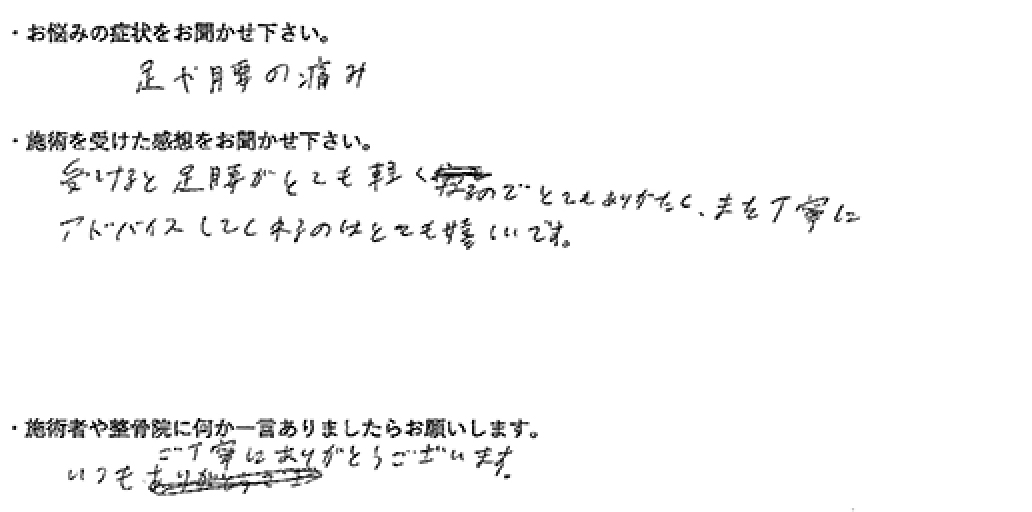 ・お悩みの症状をお聞かせ下さい。
足や腰の痛み
・施術を受けた感想をお聞かせ下さい。
受けると足腰がとても軽くなるのでとてもありがたく、また丁寧に
アドバイスしてくれるのはとても嬉しいです。
・施術者や整骨院に何か一言ありましたらお願いします。
ご丁寧にありがとうございます。
いつも